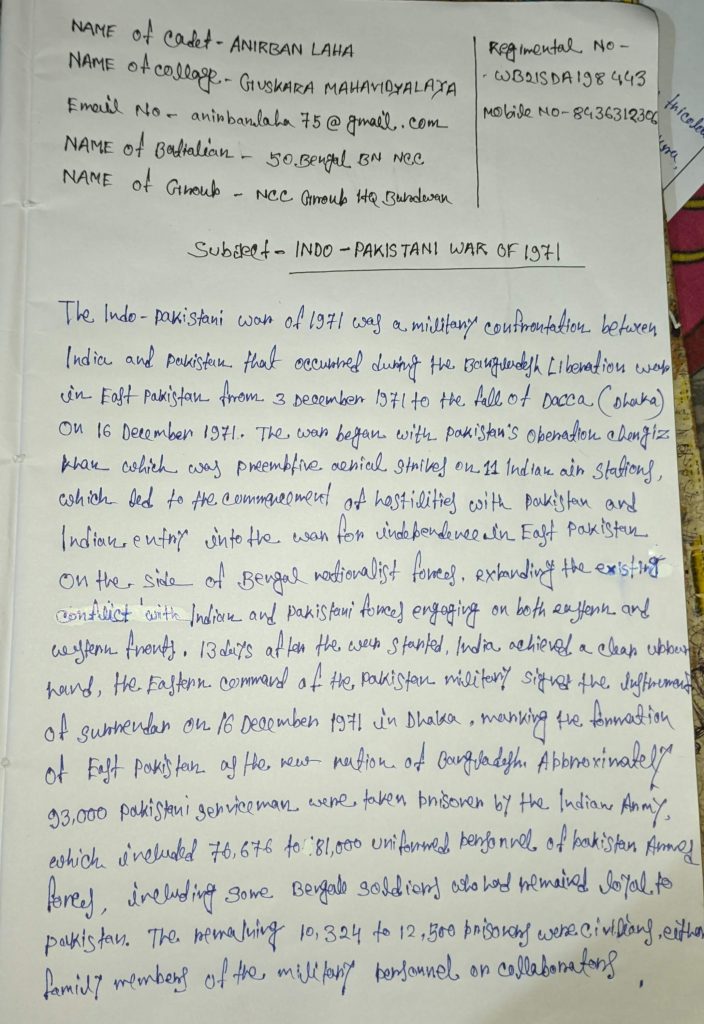 NAME of Cadet - ANIRBAN LAHA
NAME of collage - GUSKARA MAHAVIDYALAYA
Email No - anirbanlaha75@gmail.com
NAME of Battalian - 50.Bengal BN NCC
NAME of Group - NCC Group HQ Burdwan
Regimental No -
- WB21SDA198443
Mobile No - 8436312306
tricolou
Subject - INDO - PAKISTANI WAR OF 1971
The Indo - pakistani war of 1971 was a military confrontation between
India and Pakistan that occurred during the Bangladesh Liberation war
in East Pakistan from 3 December 1971 to the fall of Dacca (Dhaka)
on 16 December 1971. The war began with pakistan's operation chengiz
khan which was preemptive aerial strikes on 11 Indian air stations,
which led to the commencement of hostilities with pakistan and
Indian entry into the war for independence in East Pakistan
on the side of Bengal nationalist forces, expanding the existing
conflict with Indian and pakistani forces engaging on both eastern and
western fronts. 13 days after the war started, India achieved a clear upper
hand, the Eastern command of the pakistan military signed the Instrument
of surrender on 16 December 1971 in Dhaka, marking the formation
of East Pakistan as the new nation of Bangladesh. Approximately
93,000 pakistani serviceman were taken prisoner by the Indian Army,
which included 76,676 to 81,000 uniformed personnel of pakistan Armed
forces, including some Bengali soldiers who had remained loyal to
pakistan. The remaining 10,324 to 12,500 prisoners were civilians, either
family members of the military personnel or collaborators.